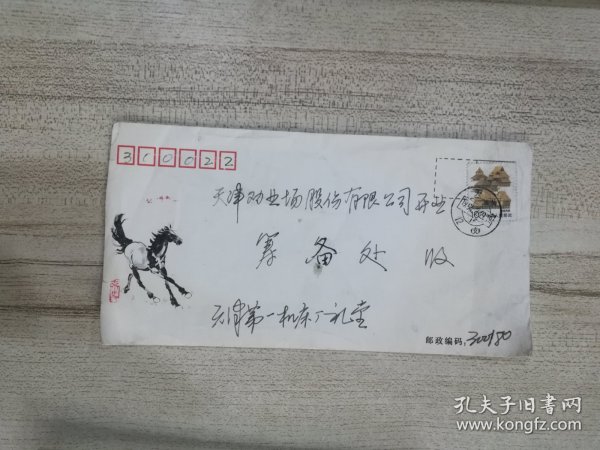 310022
天津劝业场股份有限公司开业
筹备处 收
天津第一机床厂礼堂
邮政编码：300180
孔夫子旧书网
www.kongfz.com